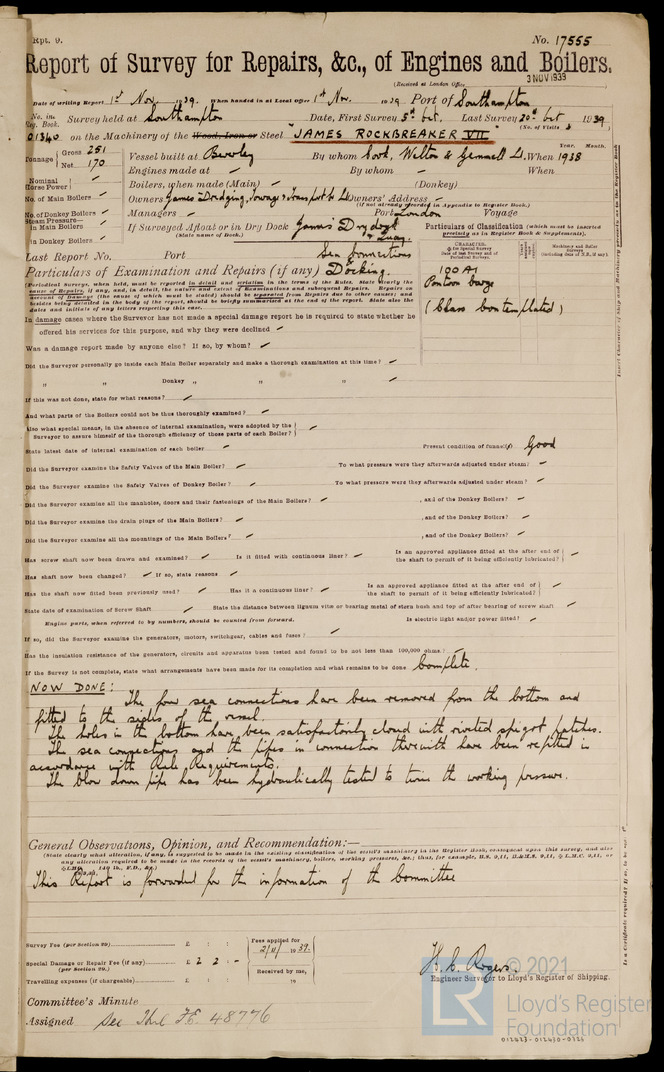 Rpt. 9.
No. 17555
Report of Survey for Repairs, &c., of Engines and Boilers.
(Received at London Office
3 NOV 1939
Date of writing Report 1st Nov. 1939. When handed in at Local Office 1st Nov. 1939 Port of Southampton
No. in Reg. Book. Survey held at Southampton Date, First Survey 5th Oct. Last Survey 20th Oct 1939
(No. of Visits 3
on the Machinery of the Wood, Iron or Steel "JAMES ROCKBREAKER VII"
Tonnage Gross 251
Net 170
Vessel built at Beverley By whom Cook, Welton & Gemmell Ld. When 1938
Year. Month.
Engines made at By whom When
Nominal Horse Power
Boilers, when made (Main) (Donkey)
No. of Main Boilers
Owners James Dredging, Towage & Transport Co Ld Owners' Address
(If not already recorded in Appendix to Register Book.)
No. of Donkey Boilers
Managers Port London Voyage
Steam Pressure—
in Main Boilers
in Donkey Boilers
If Surveyed Afloat or in Dry Dock James's Dry dock
(State name of Dock.)
& Quay.
Particulars of Classification (which must be inserted precisely as in Register Book & Supplements).
Last Report No. Port Sea Connections
Particulars of Examination and Repairs (if any) Docking.
100 A1
Pontoon barge
(Class Contemplated)
In damage cases where the Surveyor has not made a special damage report he is required to state whether he
offered his services for this purpose, and why they were declined
Was a damage report made by anyone else? If so, by whom?
Did the Surveyor personally go inside each Main Boiler separately and make a thorough examination at this time?
„ „ Donkey „ „ „
If this was not done, state for what reasons?
And what parts of the Boilers could not be thus thoroughly examined?
Also what special means, in the absence of internal examination, were adopted by the
Surveyor to assure himself of the thorough efficiency of those parts of each Boiler?
State latest date of internal examination of each boiler Present condition of funnel(s) Good
Did the Surveyor examine the Safety Valves of the Main Boiler? To what pressure were they afterwards adjusted under steam?
Did the Surveyor examine the Safety Valves of Donkey Boiler? To what pressure were they afterwards adjusted under steam?
Did the Surveyor examine all the manholes, doors and their fastenings of the Main Boilers? , and of the Donkey Boilers?
Did the Surveyor examine the drain plugs of the Main Boilers? , and of the Donkey Boilers?
Did the Surveyor examine all the mountings of the Main Boilers? , and of the Donkey Boilers?
Has screw shaft now been drawn and examined? Is it fitted with continuous liner? Is an approved appliance fitted at the after end of
the shaft to permit of it being efficiently lubricated?
Has shaft now been changed? If so, state reasons
Has the shaft now fitted been previously used? Has it a continuous liner? Is an approved appliance fitted at the after end of
the shaft to permit of it being efficiently lubricated?
State date of examination of Screw Shaft State the distance between lignum vitæ or bearing metal of stern bush and top of after bearing of screw shaft
Engine parts, when referred to by numbers, should be counted from forward. Is electric light and/or power fitted?
If so, did the Surveyor examine the generators, motors, switchgear, cables and fuses?
Has the insulation resistance of the generators, circuits and apparatus been tested and found to be not less than 100,000 ohms?
If the Survey is not complete, state what arrangements have been made for its completion and what remains to be done Complete.
NOW DONE:
The four sea connections have been removed from the bottom and
fitted to the sides of the vessel.
The holes in the bottom have been satisfactorily closed with riveted spigot patches.
The sea connections and the pipes in connection therewith have been refitted in
accordance with Rule Requirements.
The blow down pipe has been hydraulically tested to twice the working pressure.
General Observations, Opinion, and Recommendation:—
(State clearly what alteration, if any, is suggested to be made in the existing classification of the vessel's machinery in the Register Book, consequent upon this survey, and also
any alteration required to be made in the records of the vessel's machinery, boilers, working pressures, &c.; thus, for example, B.S. 9,11, B.&M.S. 9,11, or L.M.C. 9,11, or
This Report is forwarded for the information of the Committee
Survey Fee (per Section 29) £ : :
Special Damage or Repair Fee (if any) £ 2 2 : -
(per Section 29.)
Travelling expenses (if chargeable) £ : :
Fees applied for
2/11/1939.
Received by me,
19
H. C. Rogers.
Engineer Surveyor to Lloyd's Register of Shipping.
Committee's Minute
Assigned See Hul F.E. 48776
LR
© 2021
Lloyd's Register
Foundation
012623-012630-0326
Insert Character of Ship and Machinery precisely as in the Register Book